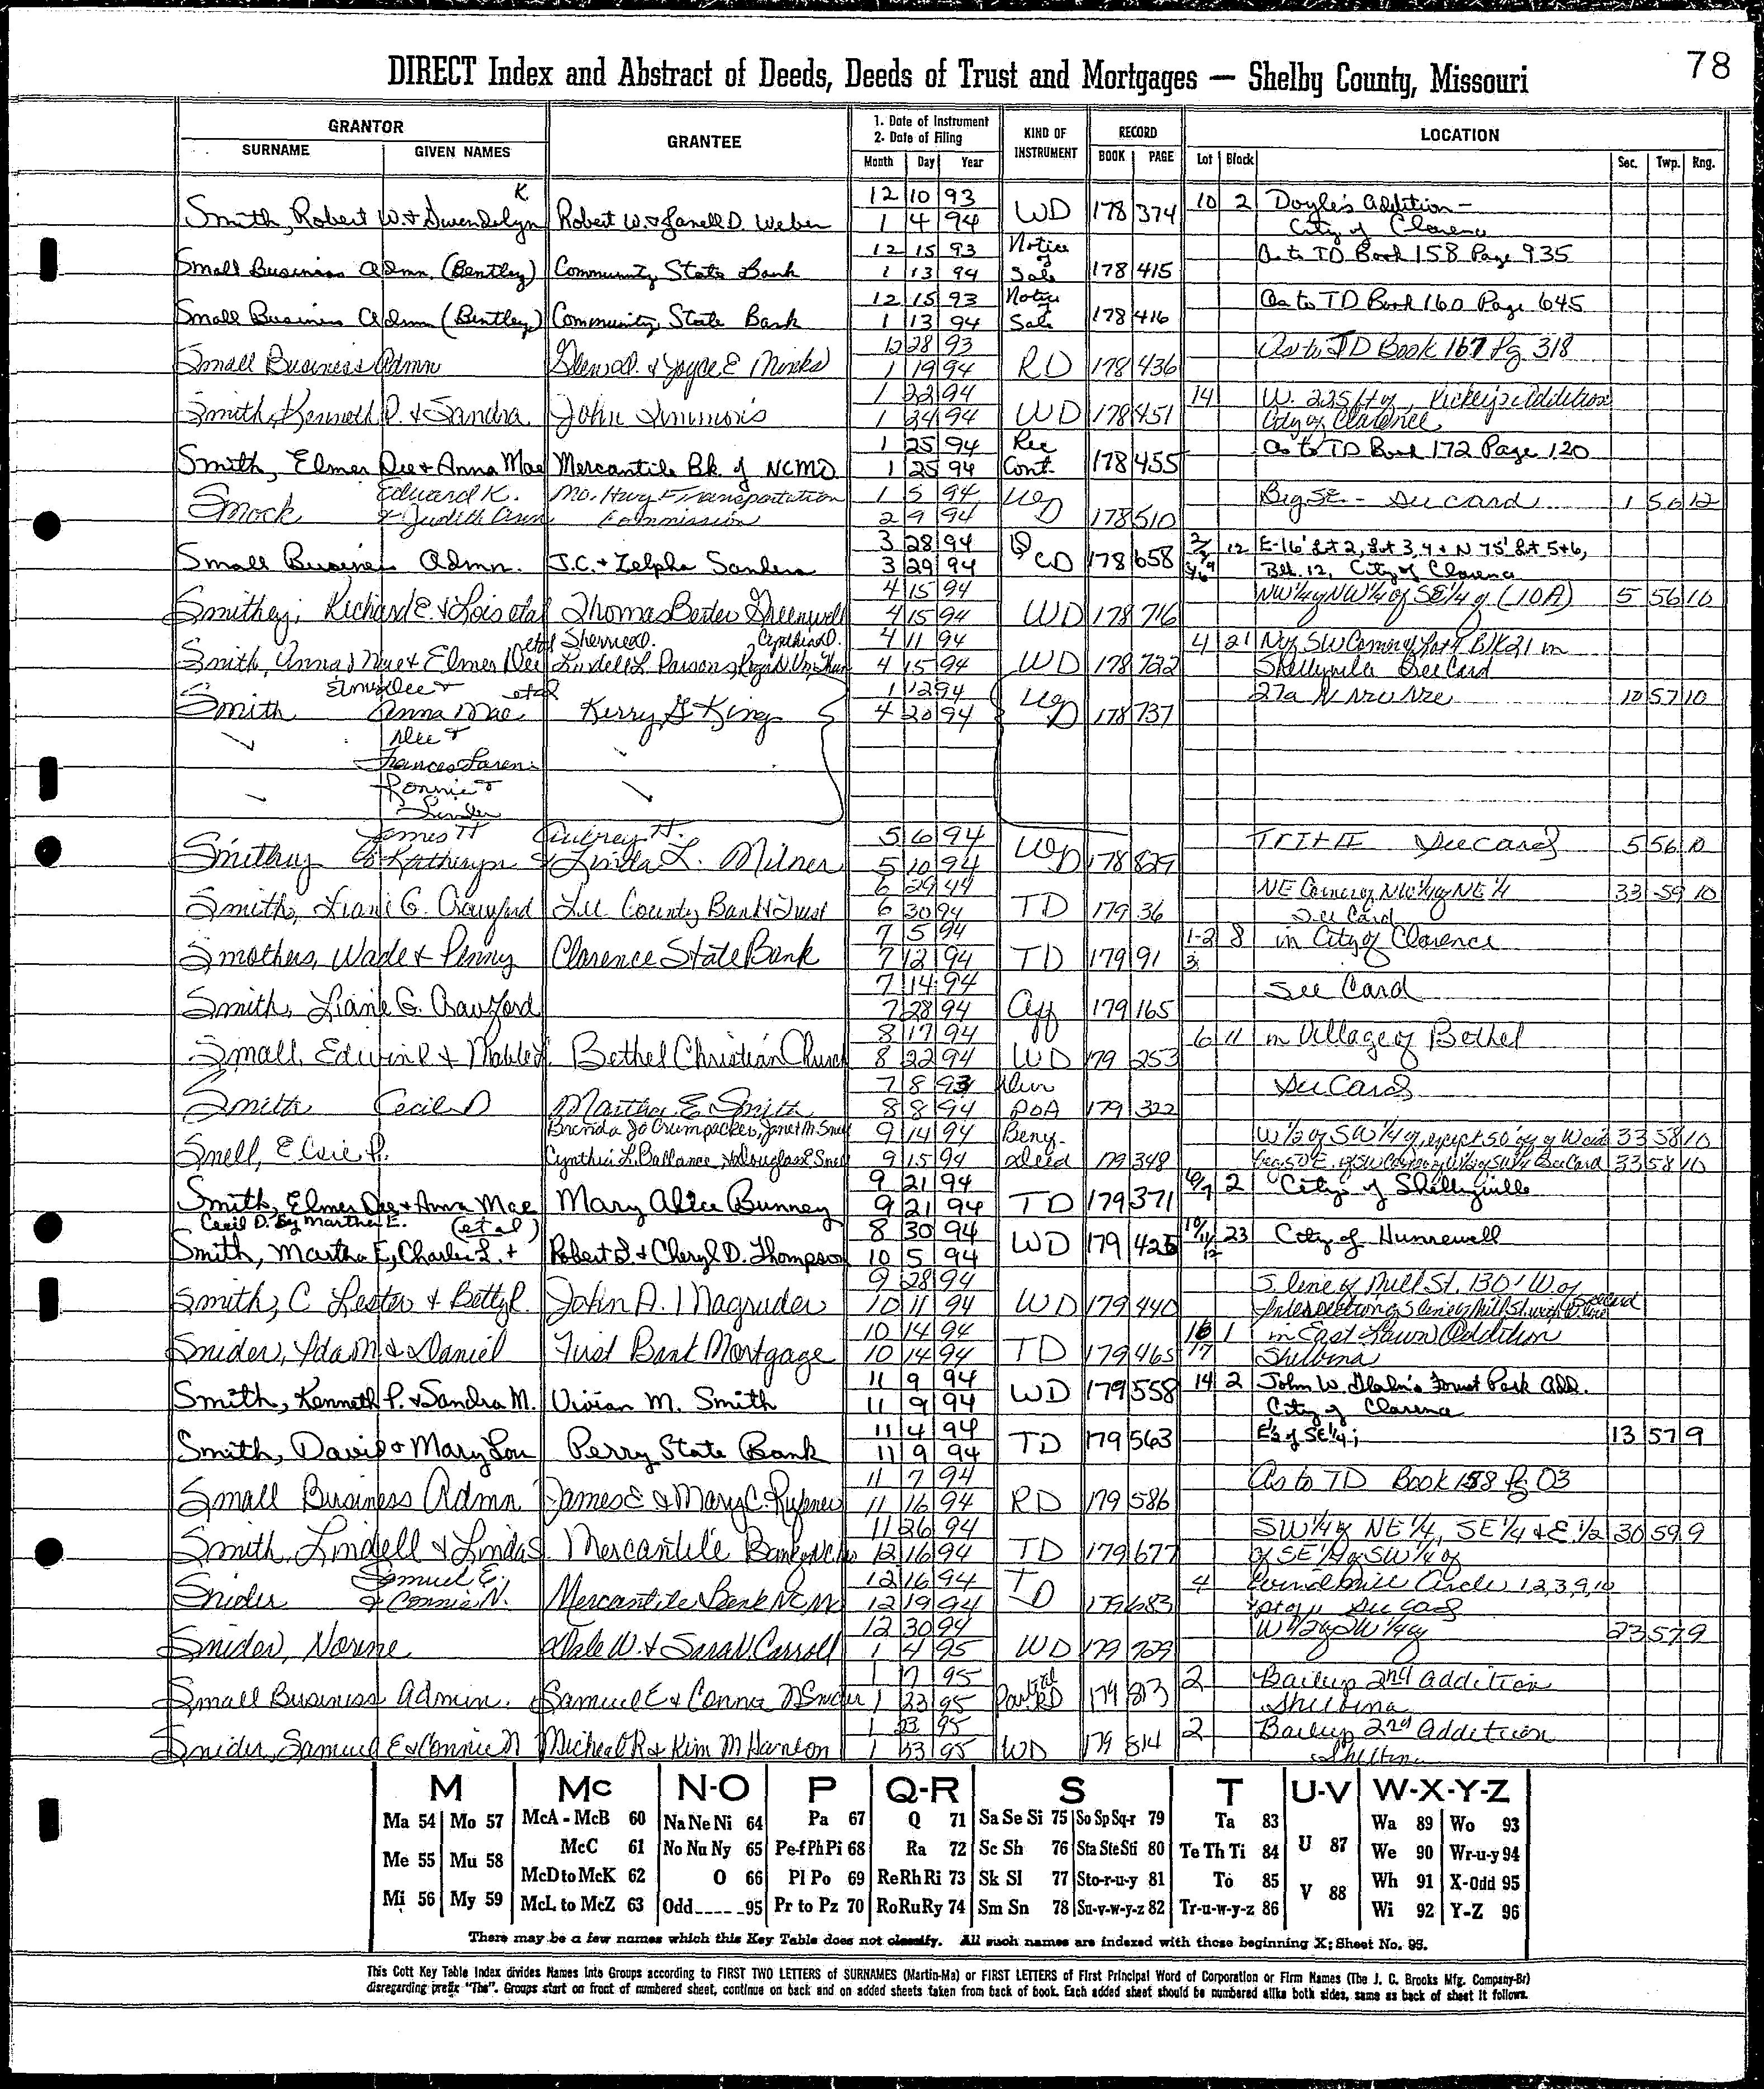 78
DIRECT Index and Abstract of Deeds, Deeds of Trust and Mortgages — Shelby County, Missouri
GRANTOR GRANTEE 1. Date of Instrument 2. Date of Filing KIND OF INSTRUMENT RECORD LOCATION
SURNAME GIVEN NAMES Month Day Year BOOK PAGE Lot Block Sec. Twp. Rng.
K 12 10 93 10 2 Doyle's Addition -
Smith, Robert W. & Gwendolyn Robert W. & Janell D. Weber 1 4 94 WD 178 374 City of Clarence
12 15 93 Notice of As to TD Book 158 Page 935
Small Business Admn. (Bentley) Community State Bank 1 13 94 Sale 178 415
12 15 93 Notice As to TD Book 160 Page 645
Small Business Admn (Bentley) Community State Bank 1 13 94 Sale 178 416
12 28 93 As to TD Book 167 Pg 318
Small Business Admn & Joyce E 1 19 94 RD 178 436
1 22 94 14 W. 225 ft of, Addition
Smith, Kenneth P. & Sandra John Simmons 1 24 94 WD 178 451 City of Clarence
1 25 94 Rec As to TD Book 172 Page 120
Smith, Elmer Dee & Anna Mae Mercantile Bk. of NCMO 1 25 94 Cont. 178 455
Edward K. Mo. Hwy & Transportation 1 5 94 WD Beg SE - See Card 1 56 12
Smock & Judith Ann Commission 2 9 94 178 510
3 28 94 12 E-16' Lt 2, Lt 3, 4 & N 75' Lt 5+6,
Small Business Admn. J.C. & Zelpha Sanders 3 29 94 QCD 178 658 Blk. 12, City of Clarence
4 15 94 NW¼ of NW¼ of SE¼ of (10A) 5 56 10
Smithey, Richard E. & Lois etal Thomas Greenwell 4 15 94 WD 178 716
etal Sherrie D. Cynthia D. 4 11 94 4 21 SW Corner of Lot 4 Blk 21 in
Smith, Anna Mae & Elmer Dee Lindell L. Parsons, 4 15 94 WD 178 722 Shelbyville See Card
Elmer Dee & etal 1 12 94 27a 10 57 10
Smith Anna Mae Kerry G King 4 20 94 WD 178 737
Dee &
Frances Laren
Ronnie &
Linda
James H Aubrey H. 5 6 94 See Card 5 56 10
Smithey & Katheryn & Linda L. Milner 5 10 94 WD 178 829
6 29 94 NE Corner of NW¼ of NE¼ 33 59 10
Smith, Liane G. Crawford Lee County Bank & Trust 6 30 94 TD 179 36 See Card
7 5 94 1-2 8 in City of Clarence
Smothers, Wade & Penny Clarence State Bank 7 12 94 TD 179 91 3
7 14 94 See Card
Smith, Liane G. Crawford 7 28 94 Aff 179 165
8 17 94 6 11 in Village of Bethel
Small, Edwin & Bethel Christian Church 8 22 94 WD 179 253
7 8 93 See Card
Smith Cecil D Martha E. Smith 8 8 94 POA 179 322
Brenda Jo Crumpacker, Janet M. Snell 9 14 94 Beny- W½ of SW¼ of, except 50' 33 58 10
Snell, Elsie P. Cynthia L. Ballance, & Douglas E Snell 9 15 94 Deed 179 348 See Card 33 58 10
9 21 94 6/7 2 City of Shelbyville
Smith, Elmer Dee & Anna Mae Mary Alice Bunney 9 21 94 TD 179 371
Cecil D. by Martha E. (etal) 8 30 94 10/11 23 City of Hunnewell
Smith, Martha E, Charles L. & Robert & Cheryl D. Thompson 10 5 94 WD 179 425 12
9 28 94 S. line of Mill St. 130' W. of
Smith, C Lester & Betty P John A. Magruder 10 11 94 WD 179 440 Intersection of S line of Mill St. with
10 14 94 16 1 in East Lawn Addition
Snider, Ida M & Daniel First Bank Mortgage 10 14 94 TD 179 465 17 Shelbina
11 9 94 14 2 John W. Forest Park Add.
Smith, Kenneth P. & Sandra M. Vivian M. Smith 11 9 94 WD 179 558 City of Clarence
11 4 94 E½ of SE¼; 13 57 9
Smith, David & Mary Lou Perry State Bank 11 9 94 TD 179 563
11 7 94 As to TD Book 158 Pg 03
Small Business Admn James E & Mary C. 11 16 94 RD 179 586
11 26 94 SW¼ of NE¼, SE¼ & E½ 30 59 9
Smith, Lindell & Linda S Mercantile Bank of NCMo 12 16 94 TD 179 677 of SE¼ of SW¼ of
Samuel E. 12 16 94 4 Circle 1, 2, 3, 9, 10
Snider & Connie N. Mercantile Bank NCMo 12 19 94 TD 179 683 See Card
12 30 94 W½ of SW¼ of 23 57 9
Snider, Norine Dale W. & Sara V. Carroll 1 4 95 WD 179 729
1 17 95 Partial 2 Bailey's 2nd Addition
Small Business Admin. Samuel E & Connie N Snider 1 23 95 RD 179 813 Shelbina
1 23 95 2 Bailey's 2nd Addition
Snider, Samuel E & Connie N Micheal R & Kim M Hanlon 1 23 95 WD 179 814 Shelbina
M Mc N-O P Q-R S T U-V W-X-Y-Z
Ma 54 Mo 57 McA - McB 60 Na Ne Ni 64 Pa 67 Q 71 Sa Se Si 75 So Sp Sq-r 79 Ta 83 U 87 Wa 89 Wo 93
Me 55 Mu 58 McC 61 No Nu Ny 65 Pe-f Ph Pi 68 Ra 72 Sc Sh 76 Sta Ste Sti 80 Te Th Ti 84 We 90 Wr-u-y 94
McD to McK 62 O 66 Pl Po 69 Re Rh Ri 73 Sk Sl 77 Sto-r-u-y 81 To 85 V 88 Wh 91 X-Odd 95
Mi 56 My 59 McL to McZ 63 Odd-----95 Pr to Pz 70 Ro Ru Ry 74 Sm Sn 78 Su-v-w-y-z 82 Tr-u-w-y-z 86 Wi 92 Y-Z 96
There may be a few names which this Key Table does not classify. All such names are indexed with those beginning X; Sheet No. 95.
This Cott Key Table Index divides Names Into Groups according to FIRST TWO LETTERS of SURNAMES (Martin-Ma) or FIRST LETTERS of First Principal Word of Corporation or Firm Names (The J. C. Brooks Mfg. Company-Br)
disregarding prefix "The". Groups start on front of numbered sheet, continue on back and on added sheets taken from back of book. Each added sheet should be numbered alike both sides, same as back of sheet it follows.